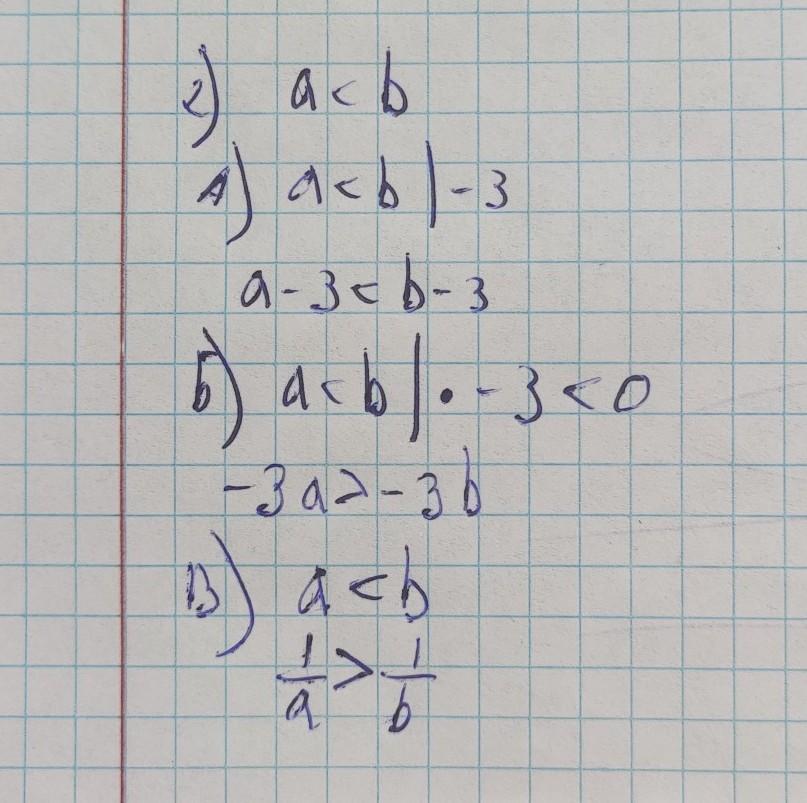 2) a < b
А) a < b | - 3
a - 3 < b - 3
Б) a < b | • - 3 < 0
- 3a > - 3b
В) a < b
1/a > 1/b